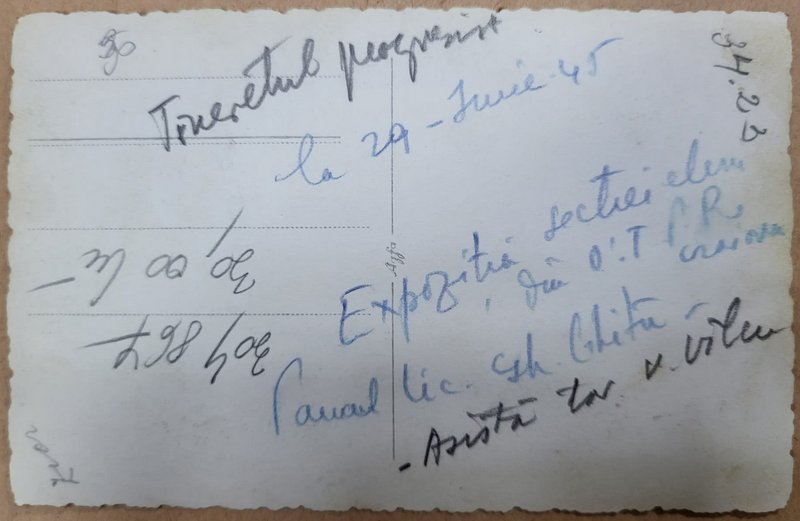 50
Tineretul progresist
la 29 - Iunie 45
34.23
Expoziția secției elevi
din O.T.P.R. Craiova
Panoul Lic. Gh. Chițu -
- Asistă tov. V. Vîlcu
30,00 lei
304867
Agfa